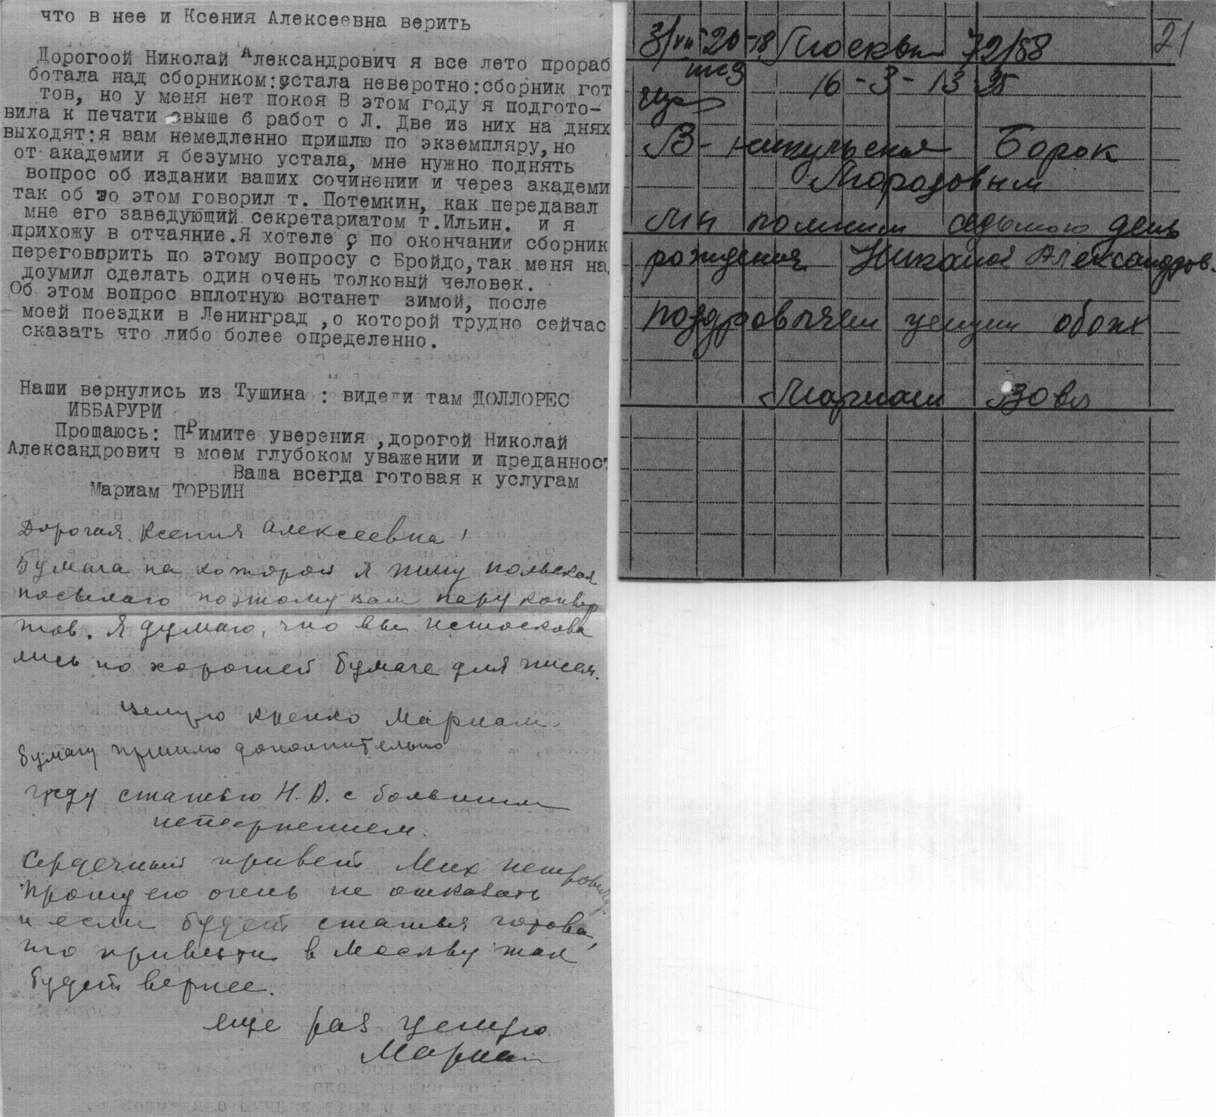 что в нее и Ксения Алексеевна верить
Дорогоой Николай Александрович я все лето прораб
ботала над сборником:устала неверотно:сборник гот
тов, но у меня нет покоя В этом году я подгото-
вила к печати свыше 6 работ о Л. Две из них на днях
выходят:я вам немедленно пришлю по экземпляру,но
от академии я безумно устала, мне нужно поднять
вопрос об издании ваших сочинении и через академи
так об этом говорил т. Потемкин, как передавал
мне его заведующий секретариатом т.Ильин. и я
прихожу в отчаяние.Я хотеле по окончании сборник
переговорить по этому вопросу с Бройдо,так меня на
доумил сделать один очень толковый человек.
Об этом вопрос вплотную встанет зимой, после
моей поездки в Ленинград ,о которой трудно сейчас
сказать что либо более определенно.
Наши вернулись из Тушина : видели там ДОЛЛОРЕС
ИББАРУРИ
Прощаюсь: Примите уверения ,дорогой Николай
Александрович в моем глубоком уважении и преданност
Ваша всегда готовая к услугам
Мариам ТОРБИН
Дорогая Ксения Алексеевна!
Бумага на которой я пишу польская
посылаю поэтому вам пару конвер
тов. Я думаю, что вы истоскова
лись по хорошей бумаге для писем.
Целую крепко Мариам.
бумагу пришлю дополнительно
жду статью Н.А. с большим
нетерпением.
Сердечный привет Мих Петровичу
Прошу его очень не отказать
и если будет статья готова,
то привезти в Москву так
будет вернее.
еще раз целую
Мариам
21
3/VII 20-18 Москвы 72/58
16-3-13 35
В-Никульская Борок
Морозовым
Мы помним седьмого день
рождения Николая Александров.
поздровычем целуем обоих
Мариам